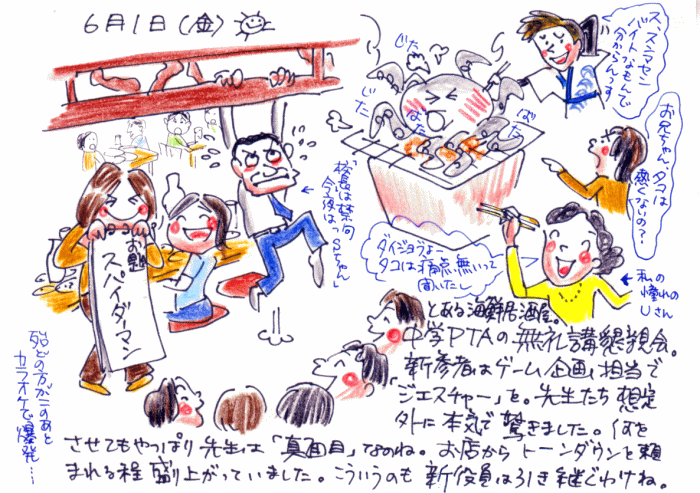 6月1日(金)
ス、スミマセン
バイトなもんで
分からんっす
お兄ちゃん、タコは
熱くないの?
じた
じた
ばた
ばた
ダイジョウブよー
タコは痛点無いって
聞いたし
私の
憧れの
Uさん
今後は
っSちゃん」
お題
スパイダーマン
殆どの方がこのあと
カラオケで爆発…
とある海鮮居酒屋。
中学PTAの無礼講懇親会。
新参者はゲーム企画担当で
「ジェスチャー」を。先生たち想定
外に本気で驚きました。何を
させてもやっぱり先生は「真面目」なのね。お店からトーンダウンを頼
まれる程盛り上がっていました。こういうのも新役員は引き継ぐわけね。